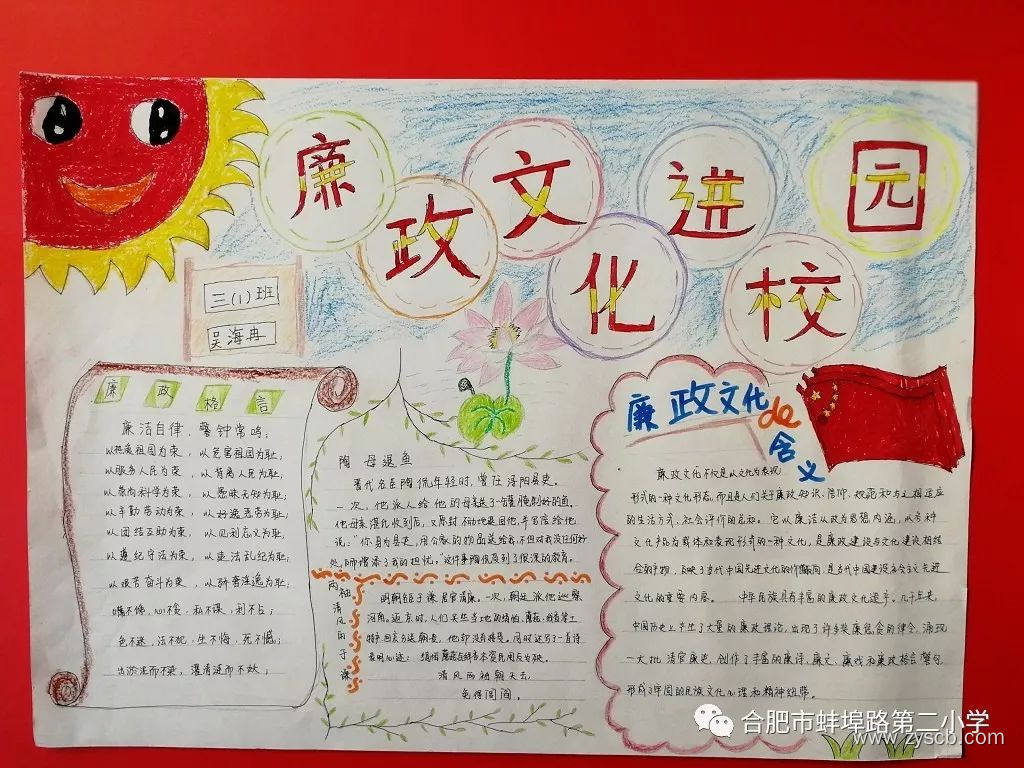 廉政文化进校园
三(1)班
吴海冉
廉政格言
廉洁自律、警钟常鸣;
以热爱祖国为荣,以危害祖国为耻;
以服务人民为荣,以背离人民为耻;
以崇尚科学为荣,以愚昧无知为耻;
以辛勤劳动为荣,以好逸恶劳为耻;
以团结互助为荣,以见利忘义为耻;
以遵纪守法为荣,以违法乱纪为耻;
以艰苦奋斗为荣,以骄奢淫逸为耻;
嘴不馋,心不贪,私不谋,利不占;
色不迷,法不犯,生不悔,死不憾;
出淤泥而不染,濯清涟而不妖;
陶母退鱼
晋代名臣陶侃年轻时,曾任浔阳县吏。
一次,他派人给他的母亲送了一罐腌制好的鱼。
他母亲湛氏收到后,又原封不动地退回他,并写信给他
说:"你身为县吏,用公家的物品送给我,不但对我没任何好
处,所增添了我的担忧。"这件事陶侃受到了很深的教育。
两袖清风的于谦
明朝能于谦居官清廉。一次,朝廷派他巡察
河南。返京时,人们买些当地的绢帕、蘑菇、线香等土
特产回京分送朝贵,他却没有接受。同时还写了一首诗
表明心迹:绢帕蘑菇与线香本资民用反为殃。
清风两袖朝天去,
免得闾阎。
廉政文化de含义
廉政文化不仅是以文化为表现
形式的一种文化形态,而且是人们关于廉政知识、信仰、规范和与之相适应
的生活方式、社会评价的总和。它以廉洁从政为思想内涵,以各种
文化产品为载体和表现形式的一种文化,是廉政建设与文化建设相结
合的产物,反映了当代中国先进文化的价值取向,是当代中国建设社会主义先进
文化的重要内容。 中华民族具有丰富的廉政文化遗产。几千年来,
中国历史上产生了大量的廉政理论,出现了许多奖廉惩贪的律令,涌现
一大批清官廉吏,创作了丰富的廉诗、廉文、廉戏和廉政格言警句,
形成了牢固的民族文化心理和精神纽带。
合肥市蚌埠路第二小学
www.zyscb.com